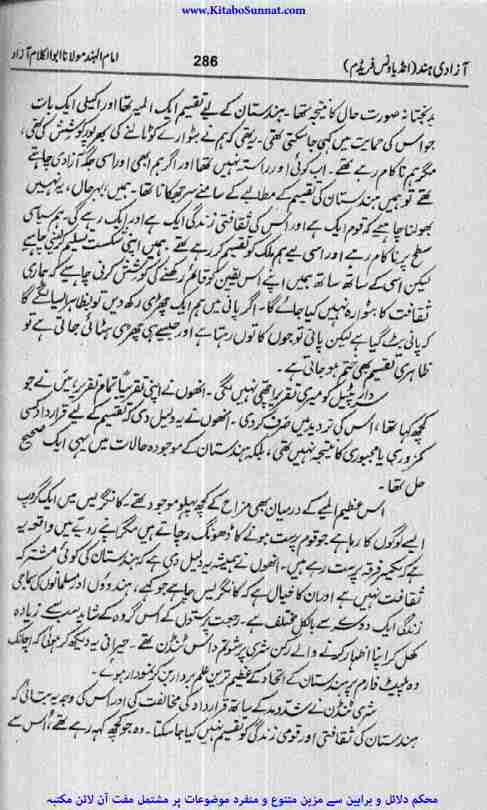 www.KitaboSunnat.com
آزادی ہند (انڈیا ونس فریڈم) 286 امام الہند مولانا ابوالکلام آزاد
بدبختانہ صورت حال کا نتیجہ تھا۔ ہندستان کے لیے تقسیم ایک المیہ تھا اور اکیلی ایک بات
جو اس کی حمایت میں کہی جا سکتی تھی۔ یہ تھی کہ ہم نے بٹوارے کو ٹالنے کی بھرپور کوشش کی تھی،
مگر ہم ناکام رہے تھے۔ اب کوئی اور راستہ نہیں تھا اور اگر ہم ابھی اور اسی جگہ آزادی چاہتے
تھے تو ہمیں ہندستان کی تقسیم کے مطالبے کے سامنے سر جھکانا تھا۔ ہمیں بہرحال، یہ نہیں
بھولنا چاہیے کہ قوم ایک ہے اور اُس کی ثقافتی زندگی ایک ہے اور ایک رہے گی۔ ہم سیاسی
سطح پر ناکام رہے اور اسی لیے ہم ملک کو تقسیم کر رہے تھے۔ ہمیں اپنی شکست تسلیم کر لینی چاہیے
لیکن اسی کے ساتھ ساتھ ہمیں اپنے اس یقین کو قائم رکھنے کی کوشش کرنی چاہیے کہ ہماری
ثقافت کا بٹوارہ نہیں کیا جائے گا۔ اگر پانی میں ہم ایک چھڑی رکھ دیں تو بظاہر ایسا لگے گا
کہ پانی بٹ گیا ہے لیکن پانی تو جوں کا توں رہتا ہے اور جیسے ہی چھڑی ہٹائی جاتی ہے تو
ظاہری تقسیم بھی ختم ہو جاتی ہے۔
سردار پٹیل کو میری تقریر اچھی نہیں لگی۔ انھوں نے اپنی تقریباً تمام تقریر میں نے جو
کچھ کہا تھا، اس کی تردید میں صرف کر دی۔ انھوں نے یہ دلیل دی کہ تقسیم کے لیے قرارداد کسی
کمزوری یا مجبوری کا نتیجہ نہیں تھی، بلکہ ہندستان کے موجودہ حالات میں یہی ایک صحیح
حل تھا۔
اس عظیم المیے کے درمیان بھی مزاح کے کچھ پہلو موجود تھے۔ کانگریس میں ایک گروپ
ایسے لوگوں کا رہا ہے جو قوم پرست ہونے کا ڈھونگ رچاتے ہیں مگر اپنے رویے میں واقعہ یہ
ہے کہ یکسر فرقہ پرست رہے ہیں۔ انھوں نے ہمیشہ یہ دلیل دی ہے کہ ہندستان کی کوئی مشترکہ
ثقافت نہیں ہے اور ان کا خیال ہے کہ کانگریس چاہے جو کہے، ہندوؤں اور مسلمانوں کی سماجی
زندگی ایک دوسرے سے بالکل مختلف ہے۔ رجعت پرستوں کے اس گروہ کے شاید سب سے زیادہ
کھل کر اپنا اظہار کرنے والے رکن شری پرشوتم داس ٹنڈن تھے۔ حیرانی یہ دیکھ کر ہوئی کہ اچانک
وہ پلیٹ فارم پر ہندستان کے اتحاد کے عظیم ترین علم بردار بن کر نمودار ہوئے۔
شری ٹنڈن نے شد و مد کے ساتھ قرارداد کی مخالفت کی اور اس کی وجہ یہ بتائی کہ
ہندستان کی ثقافتی اور قومی زندگی کو تقسیم نہیں کیا جا سکتا۔ وہ جو کچھ کہہ رہے تھے، اُس سے
محکم دلائل و براہین سے مزین متنوع و منفرد موضوعات پر مشتمل مفت آن لائن مکتبہ